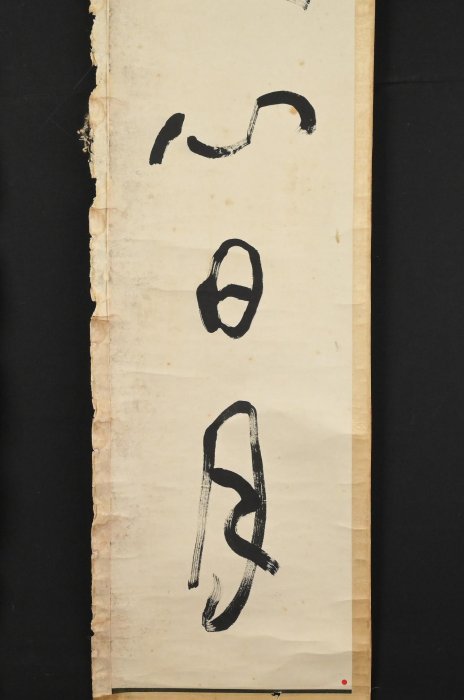 心日月